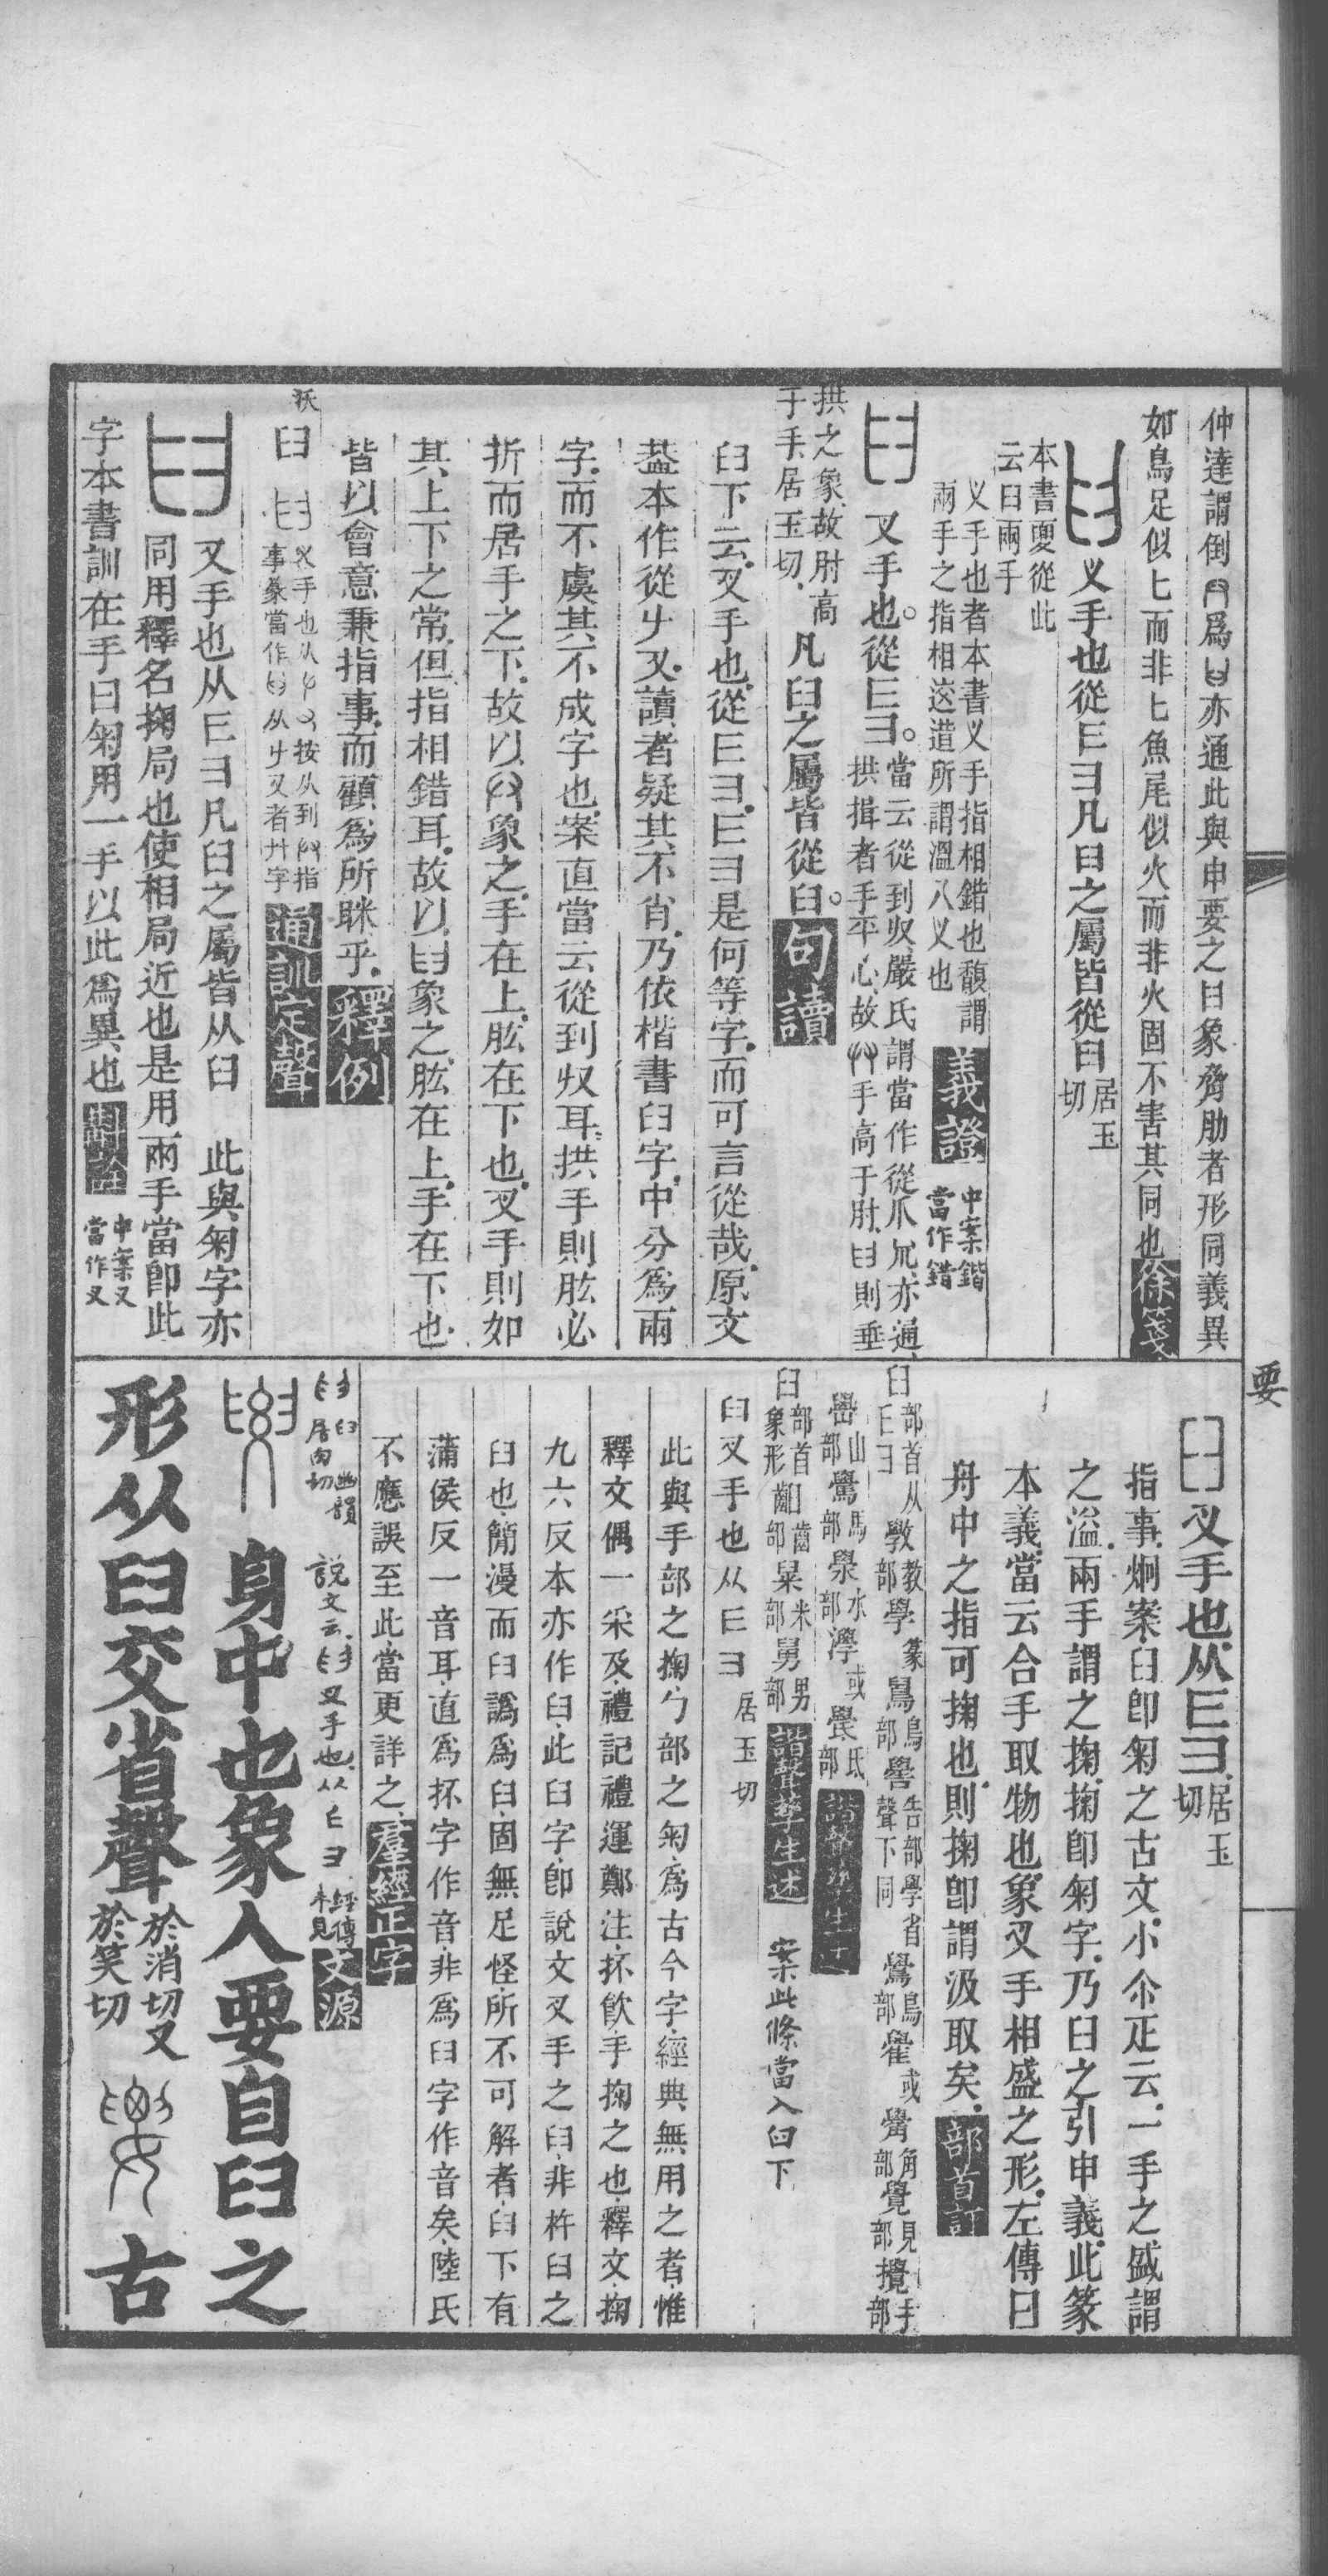 仲達謂倒爲亦通此與申要之𦥑象脅肋者形同義異
如鳥足似匕而非匕魚尾似火而非火固不害其同也徐箋
叉手也從𦥑凡𦥑之屬皆從𦥑居玉切
本書要從此
云𦥑兩手
叉手也者本書叉手指相錯也馥謂
兩手之指相迻造所謂溫八叉也
義證
中案鍇
當作錯
叉手也。從𦥑。
當云從到𠬞嚴氏謂當作從爪亦通
拱揖者手平心故手高于肘則垂
拱之象故肘高
于手居玉切
凡𦥑之屬皆從𦥑。句讀
𦥑下云叉手也從是何等字而可言從哉原文
葢本作從又讀者疑其不肖乃依楷書𦥑字中分爲兩
字而不虞其不成字也案直當云從到𠬞耳拱手則肱必
折而居手之下故以象之手在上肱在下也叉手則如
其上下之常但指相錯耳故以象之肱在上手在下也
皆以會意兼指事而顧爲所眯乎釋例
沃
𦥑
叉手也从按从到指
事篆當作从又者廾字
通訓定聲
叉手也从凡𦥑之屬皆从𦥑 此與匊字亦
同用釋名掬局也使相局近也是用兩手當卽此
字本書訓在手曰匊用一手以此爲異也
中案又
當作叉
要
叉手也从居玉切
指事炯案𦥑卽匊之古文小尒疋云一手之盛謂
之溢兩手謂之掬掬卽匊字乃𦥑之引申義此篆
本義當云合手取物也象叉手相盛之形左傳曰
舟中之指可掬也則掬卽謂汲取矣部首訂
𦥑部首从斆教部學篆鷽鳥部嚳告部學省聲下同鷽鳥部雤或觷角部覺見部攪手部
嶨山部鷽馬部澩水部灂或
𦥑部首象形齒部𦥑米部舅男部諧聲孳生述 案此條當入臼下
𦥑叉手也从居玉切
此與手部之掬勹部之匊爲古今字經典無用之者惟
釋文偶一采及禮記禮運鄭注抔飮手掬之也釋文掬
九六反本亦作𦥑此𦥑字卽說文叉手之𦥑非杵臼之
臼也簡漫而𦥑譌爲臼固無足怪所不可解者臼下有
蒲侯反一音耳直爲抔字作音非爲𦥑字作音矣陸氏
不應誤至此當更詳之羣經正字
𦥑 幽韻
居匊切
說文云叉手也从
經傳
未見
文源
身中也象人要自𦥑之
形从𦥑交省聲
於消切又
於笑切
古